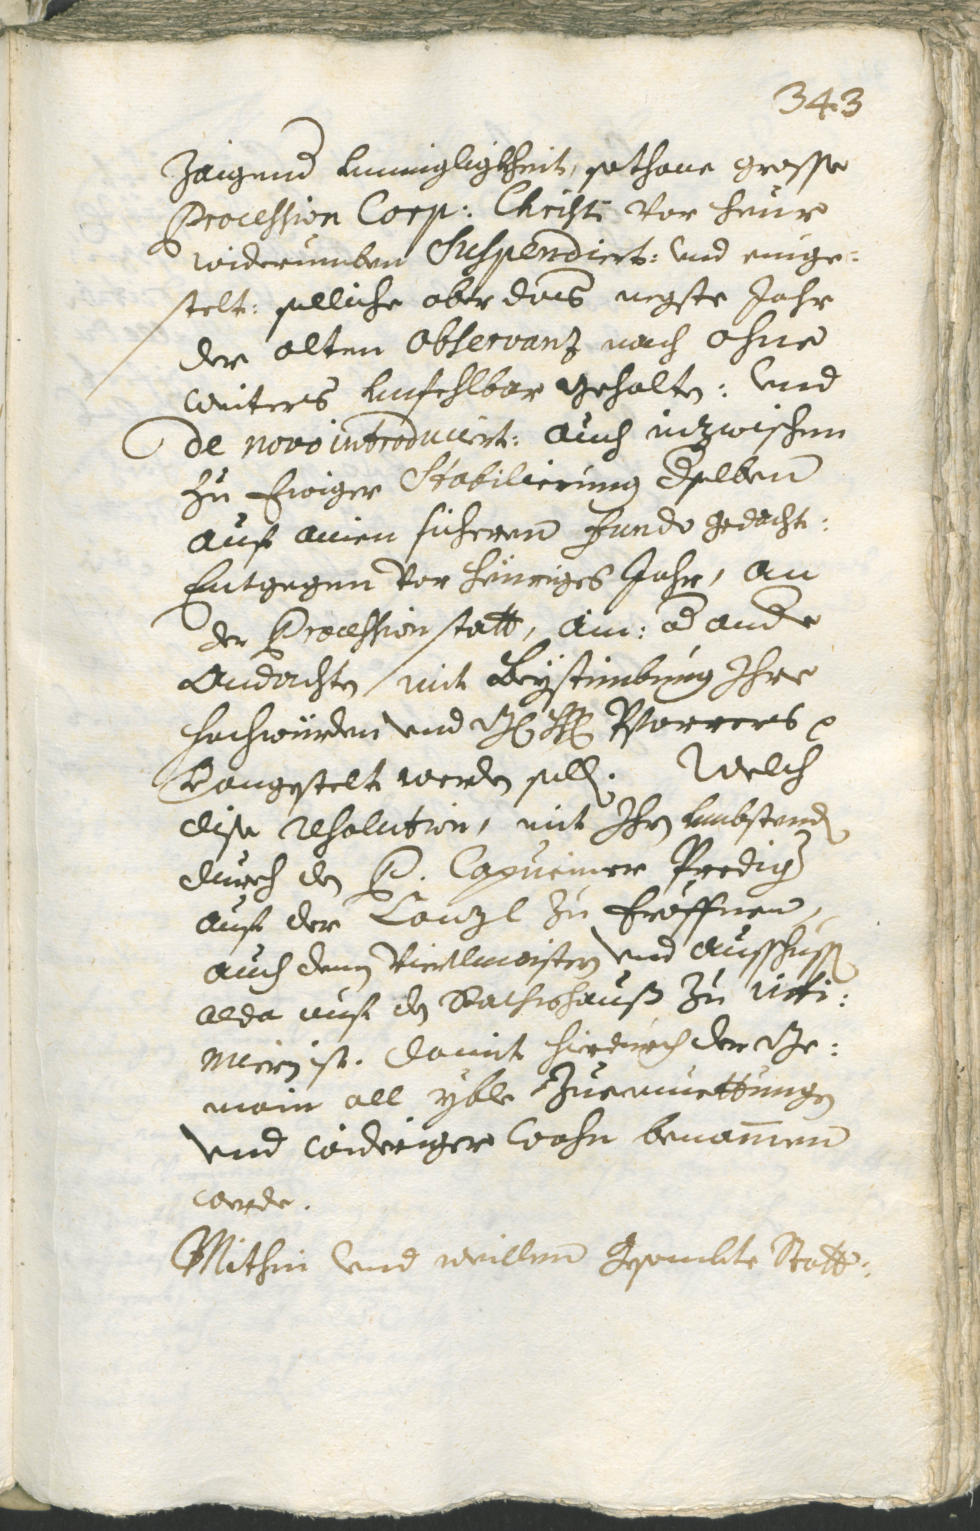 343
Zaigend Unmigligkheit, sothane grosse
Procession Corp: Christi vor heur
widerumben Suspendiert: und einge-
stelt: solliche aber das negste Jahr
der alten Observanz nach ohne
weiters Unfehlbar gehalten: und
de novo introduciert: auch inzwischen
zu Ewiger Stabilierung dselben
auf ainen sicheren Fundo gedacht:
Entgegen vor heuriges Jahr, an
der Procession statt, ain: od andre
Andachten mit Beystimbung Ihre
Hochwürden und H H Pfarrers
angestelt werden soll. Welch
dise resolution, mit Ihren Umbstend
durch den P. Capuciner Predig
auf der Canzl zu Eröffnen,
auch denen Viertlmaistern und Ausschuss
alda auf den Rathshauß zu inti-
mieren ist. damit hierdurch der Ge-
main all yble Zuemuettungen
und widriger Wohn benommen
werde.
Mithin und weillen gesambte Statt-